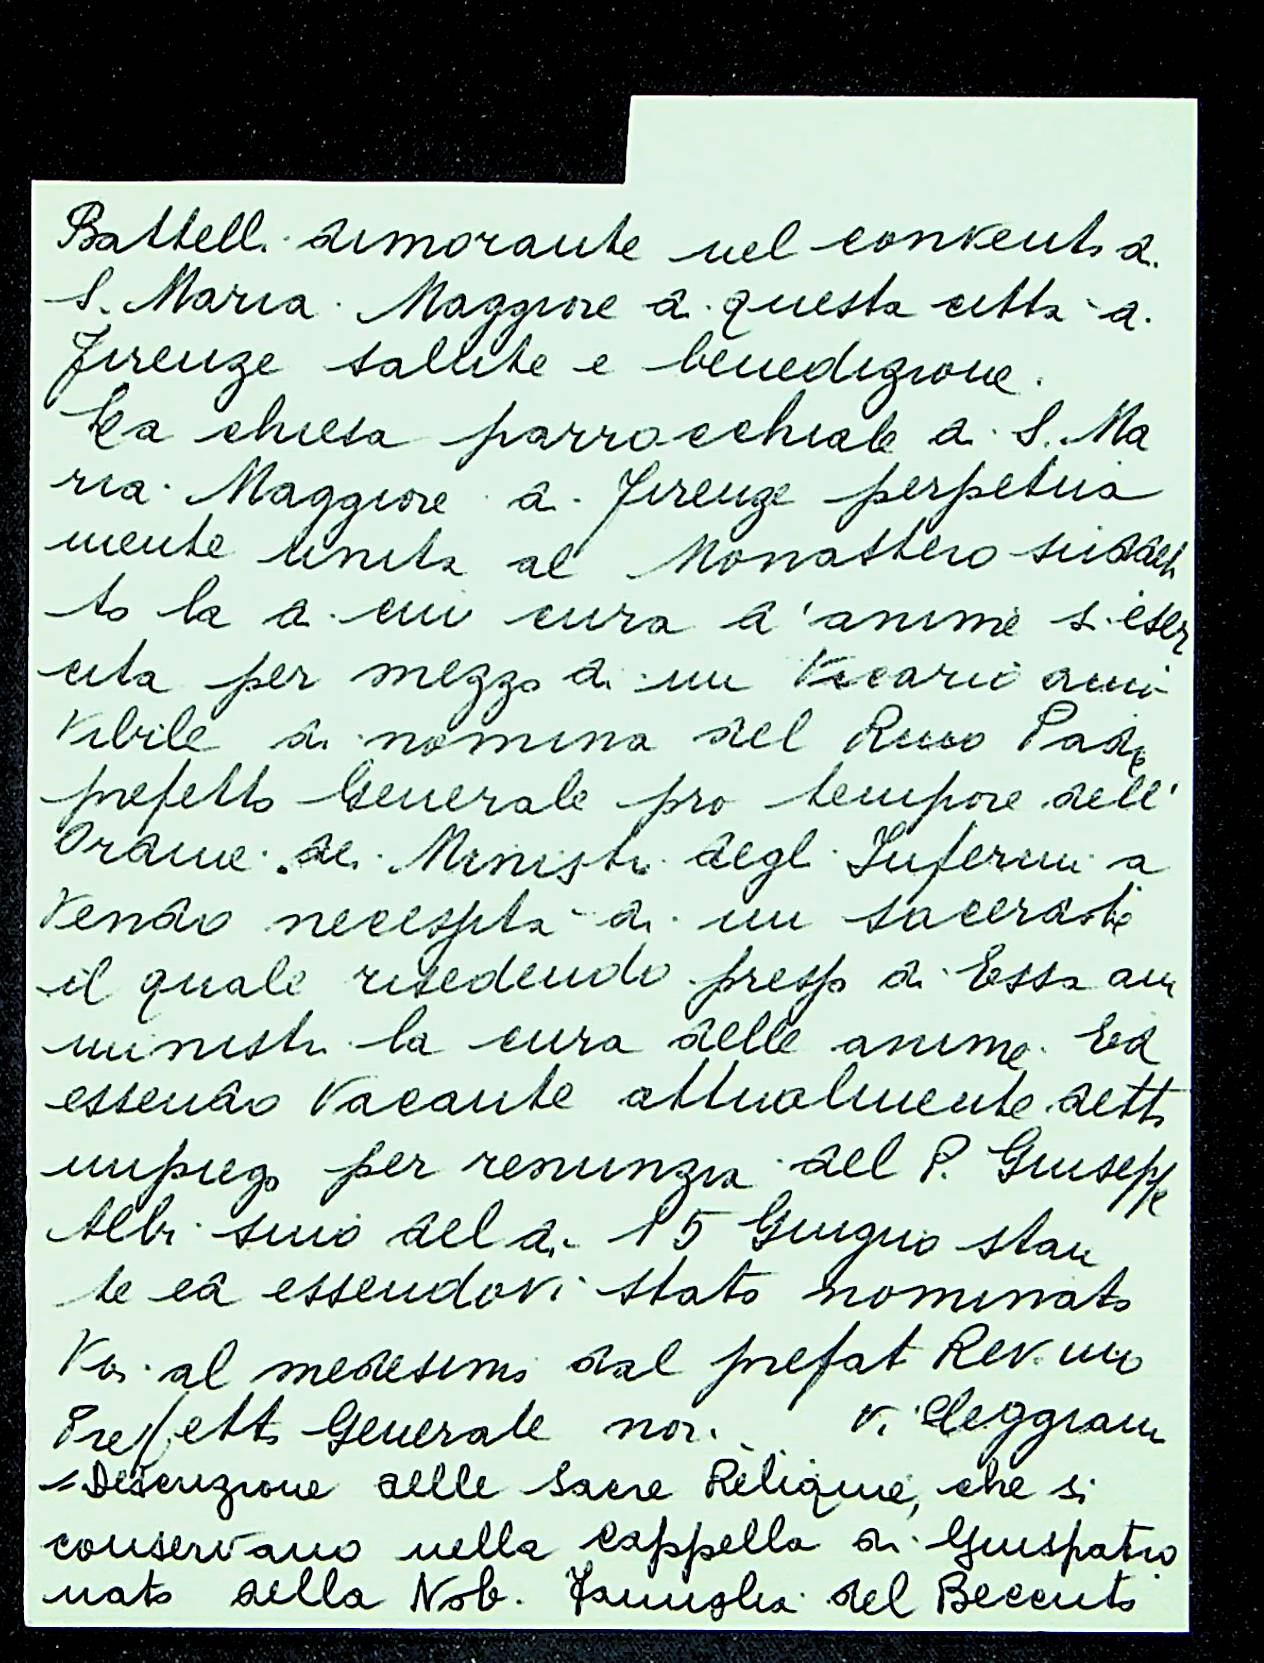 Battelli dimorante nel convento di
S. Maria Maggiore di questa città di
Firenze salute e benedizione.
La chiesa parrocchiale di S. Ma
ria Maggiore di Firenze perpetua
mente unita al Monastero suddet
to la di cui cura d'anime si eser
cita per mezzo di un Vicario amo
vibile di nomina del Rmo Padre
prefetto Generale pro tempore dell'
Ordine dei Ministri degli Infermi a
vendo necessità di un sacerdote
il quale risedendo presso di Essa am
ministri la cura delle anime. Ed
essendo vacante attualmente detto
impiego per renunzia del P. Giuseppe
sino del dì 15 Giugno stan
te ed essendovi stato nominato
Voi al medesimo dal prefat Rev.mo
Prefetto Generale noi. Vi eleggiam
= Descrizione delle Sacre Reliquie, che si
conservano nella cappella di Giuspatro
nato della Nob. Famiglia del Beccuto